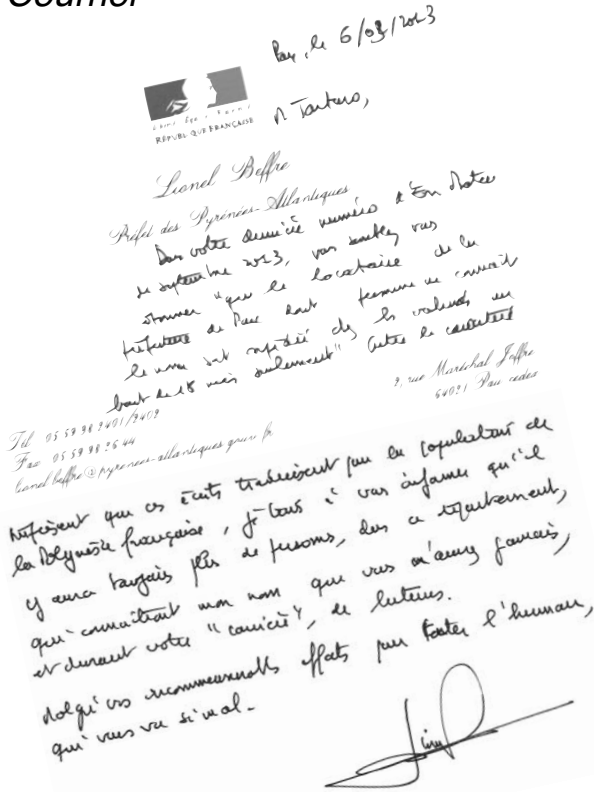 Courrier
Pau, le 6/09/2013
REPUBLIQUE FRANÇAISE
M. Tarturo,
Lionel Beffre
Préfet des Pyrénées-Atlantiques
Dans votre dernier numéro
de septembre 2013, vous semblez vous
étonner "que le locataire de la
préfecture de Pau dont personne ne connaît
le nom soit expédié chez les
bout de 18 mois seulement" outre le caractère
2, rue Maréchal Joffre
64021 Pau cedex
Tél 05 59 98 2401/2402
Fax 05 59 98 26 44
lionel.beffre@pyrenees-atlantiques.gouv.fr
méprisant que ces écrits traduisent pour la population de
la Polynésie française, je tiens à vous informer qu'il
y aura toujours plus de personnes, dans ce département,
qui connaîtront mon nom que vous n'aurez jamais,
et durant votre "carrière", de lecteurs.
Malgré vos efforts pour l'humour,
qui vous va si mal.